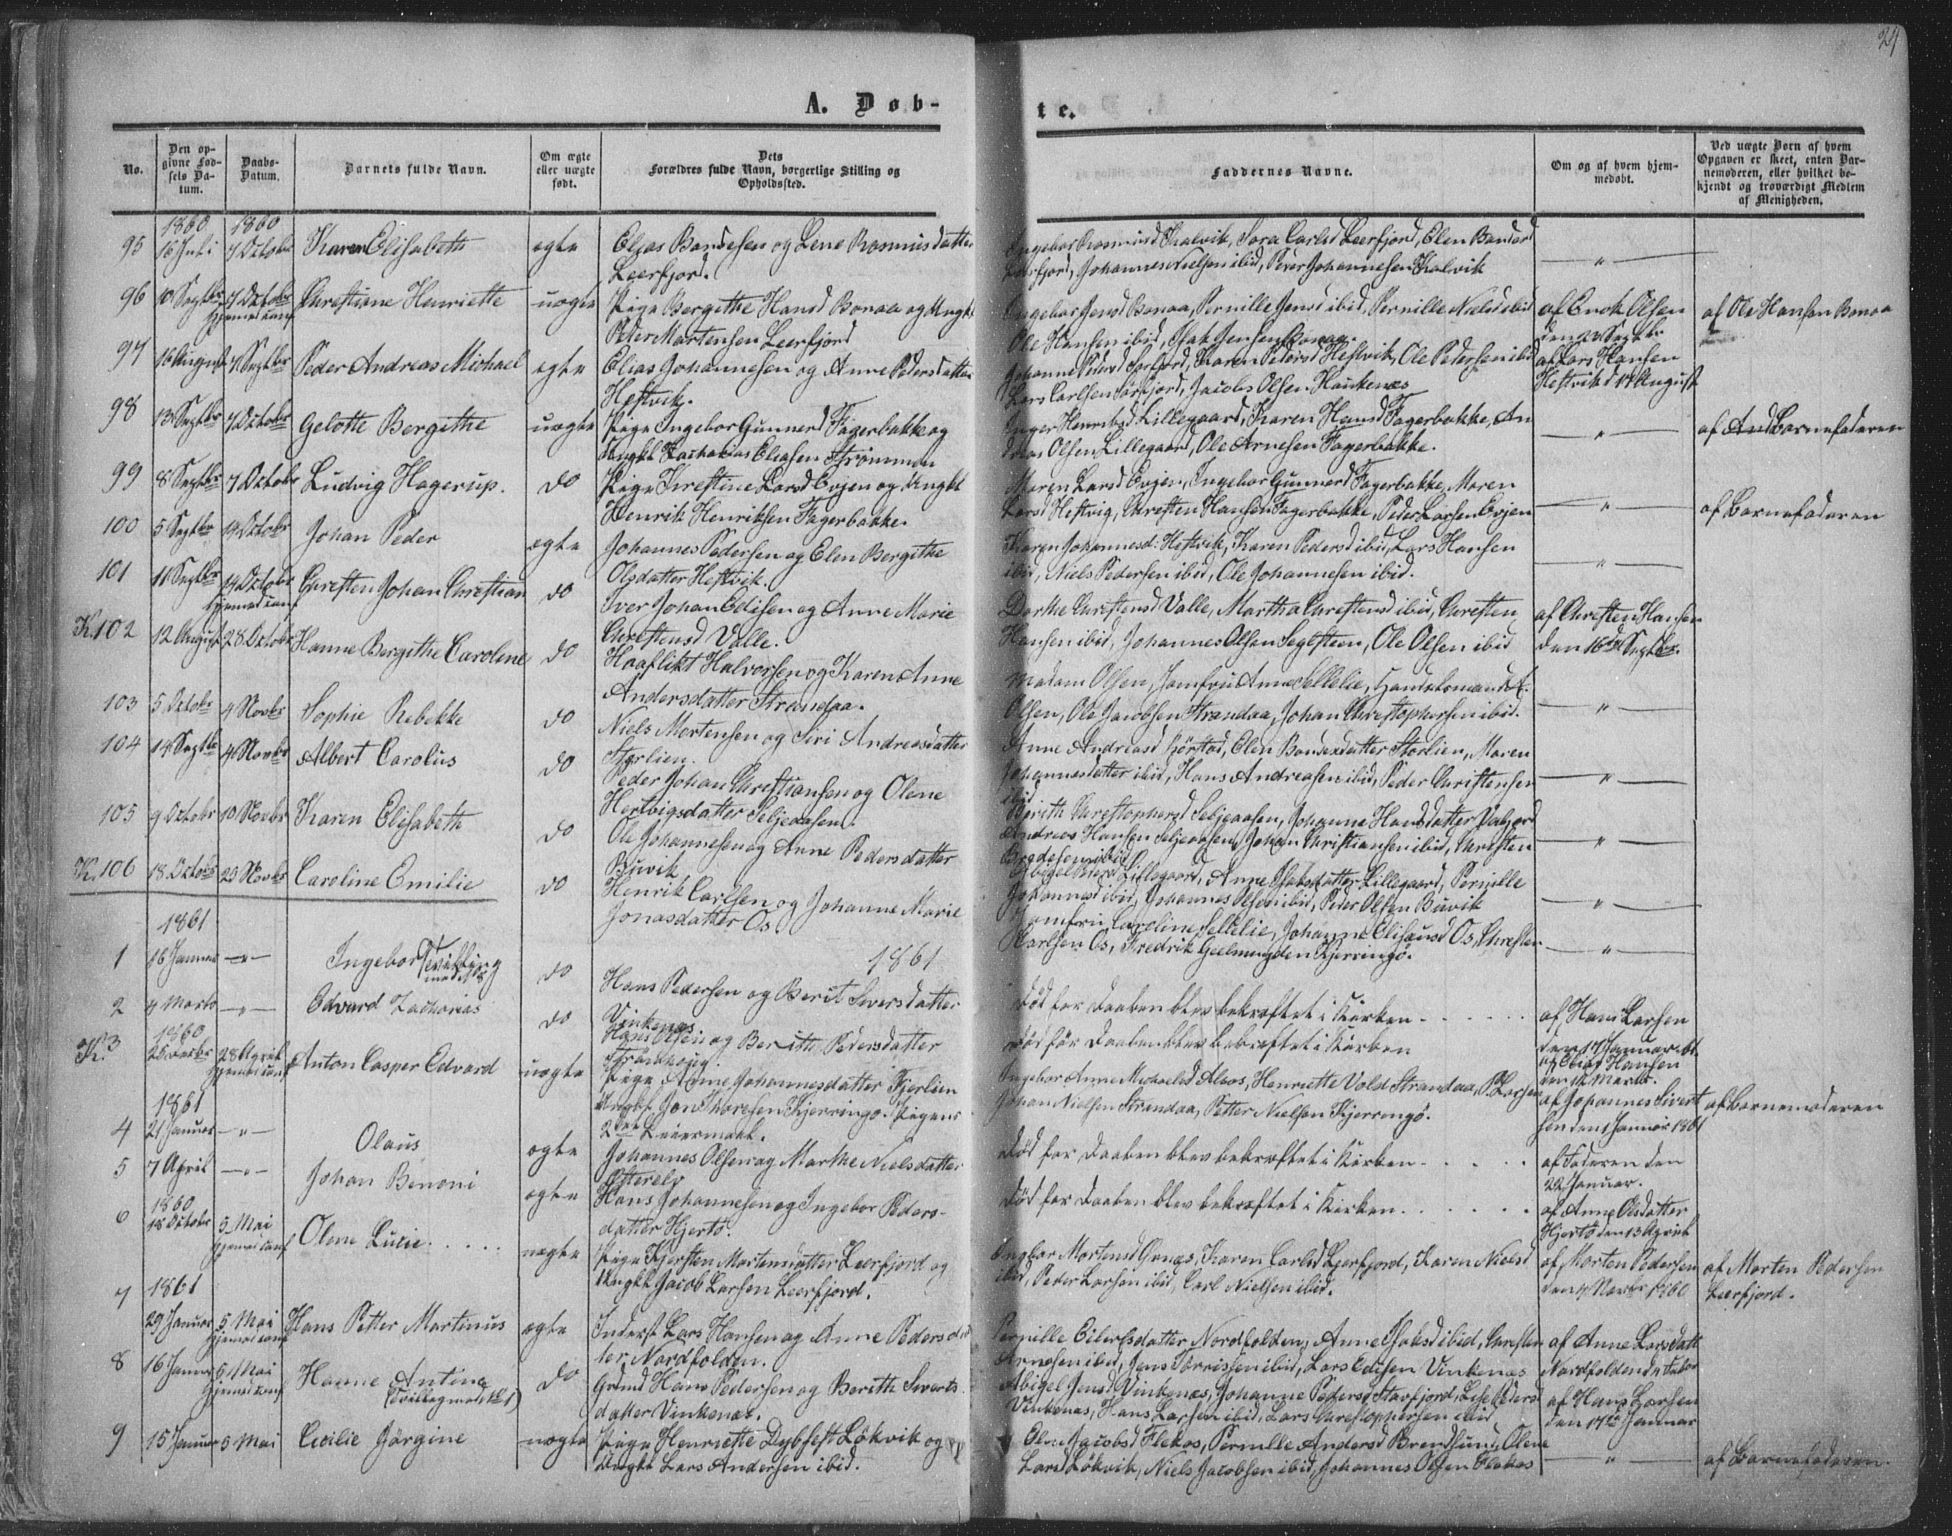 24
A. Døb-
te.
No.
Den op-
givne Fød-
sels Da-
tum.
Daabs-
Datum.
Barnets fulde Navn.
Om ægte
eller uægte
født.
Dets
Forældres fulde Navn, borgerlige Stilling og
Opholdssted.
Faddernes Navne.
Om og af hvem hjem-
medøbt.
Ved uægte Børn af hvem
Opgaven er skeet, enten Bar-
nemoderen, eller hvilket be-
kjendt og troværdigt Medlem
af Menigheden.
1860 1860
95 16 Juli 7 Octobr Karen Elisabeth ægte
Elias Bandesen og Lene Rasmusdatter
Leerfjord.
Ingebor Rasmusd Kalvik, Sara Carlsd Leerfjord, Elen Bandesd
Leerfjord, Johannes Nielsen ibid, Peder Johannesen Kalvik
96 10 Septbr 7 Octobr Christiane Henriette uægte
Hjemmed. conf
Pige Bergithe Hansd Bonaa og Ungkl
Peder Mortensen Leerfjord
Ingebor Jensd Bonaa, Pernille Jensd ibid, Pernille Nielsd ibid
Ole Hansen ibid, Isak Jensen Bonaa.
af Enok Olsen
af Ole Hansen Bonaa
97 16 August 7 Septbr Peder Andreas Michael ægte
Elias Johannesen og Anne Pedersdatter
Heftvik.
Johanne Pedersd Sørfjord, Karen Pedersd Heftvik, Ole Pedersen ibid
Lars Carlsen Sørfjord, Jacob Olsen Haukenæs
af Lars Hansen
Heftvik d 17 August
98 13 Septbr 7 Octobr Gelotte Bergithe uægte
Pige Ingebor Gunnersd Fagerbakke og
Ungkl Zacharias Eliasen Strømmen
Inger Henriksd Lillegaard, Karen Hansd Fagerbakke, An
dreas Olsen Lillegaard, Ole Arnesen Fagerbakke.
af Barnefaderen
99 8 Septbr 7 Octobr Ludvig Hagerup. do
Pige Kirstine Larsd Evjen og Ungkl
Henrik Henriksen Fagerbakke.
Maren Larsd Evjen, Ingebor Gunnersd Fagerbakke, Maren
Larsd Heftvig, Christen Hansen Fagerbakke, Peder Larsen Evjen
af Barnefaderen
100 5 Septbr 14 Octobr Johan Peder ægte
Johannes Pedersen og Elen Bergithe
Olsdatter Heftvik.
Karen Johannesd: Heftvik, Karen Pedersd ibid, Lars Hansen
ibid, Niels Pedersen ibid, Ole Johannesen ibid.
101 11 Septbr 14 Octobr Christen Johan Christian do
Hjemmed. conf
Iver Johan Edisen og Anne Marie
Christensd Valle.
Dorthe Christensd Valle, Martha Christensd ibid, Christen
Hansen ibid, Johannes Olsen Segelsteen, Ole Olsen ibid
af Christen Hansen
den 16de Septbr.
K. 102 12 August 28 Octobr Hanne Bergithe Caroline do
Haaflikt Halvorsen og Karen Anne
Andersdatter Strandaa.
Madam Olsen, Jomfru Anne Sellelie, Handelsmand A.
Olsen, Ole Jacobsen Strandaa, Johan Christophersen ibid.
103 5 Octobr 4 Novbr Sophie Rebekke do
Niels Mortensen og Siri Andreasdatter
Storlien.
Anne Andreasd Hørstad, Elen Bandesdatter Storlien, Maren
Johannesdatter ibid, Hans Andreasen ibid, Peder Christensen
ibid
104 14 Septbr 4 Novbr Albert Carolus do
Peder Johan Christiansen og Olene
Hertvigsdatter Seljeaasen.
Berith Christophersd Seljeaasen, Johanne Hansdatter
Andreas Hansen Seljeaasen, Johan Christiansen ibid, Christen
ibid
105 9 Octobr 10 Novbr Karen Elisabeth do
Ole Johannesen og Anne Pedersdatter
Buvik
Abigel Lillegaard, Anne Isaksdatter Lillegaard, Pernille
Johannesd ibid, Johannes Olsen ibid, Peder Olsen Buvik
K. 106 18 Octobr 25 Novbr Caroline Emilie do
Henrik Carlsen og Johanne Marie
Jonasdatter Os
Jomfru Caroline Sellelie, Johanne Eliseusd Os, Christen
Karlsen Os, Fredrik Geelmuyden Kjerringø.
1861
1861
1 16 Januar Ingebor Tvilling
med No 8 do
Hans Pedersen og Berit Siversdatter
Vinkenæs
død før Daaben blev bekræftet i Kirken
af Hans Larsen
den 17 Januar 61.
2 4 Marts Edvard Zacharias do
Hans Olsen og Berith Pedersdatter
Strandhoug
død før Daaben blev bekræftet i Kirken
af Elias Hansen
den 12 Marts.
1860
K. 3 28 April Anton Casper Edvard uægte
Hjemmed. conf
Pige Anne Johannesdatter Fjerlien
Ungkl Jon Thoresen Kjerringø. Pigens
2det Leiermaal.
Ingebor Anne Michaelsd Alsos, Henriette Vold Strandaa, P. Larsen
Johan Nielsen Strandaa, Petter Nielsen Kjerringø.
af Johannes Sivert
sen den 1 Januar 1861
af Barnemoderen
1861
4 21 Januar Olaus ægte
Johannes Olsen og Marthe Nielsdatter
død før Daaben blev bekræftet i Kirken
af Faderen den
22 Januar.
5 7 April Johan Benoni ægte
Hans Johannesen og Ingebor Peders-
datter Hjertø.
død før Daaben blev bekræftet i Kirken
af Anne Olsdatter
Hjertø den 13 April
1860
6 18 Octobr 5 Mai Olene Lucie uægte
Hjemmed. conf
Pige Kjersten Martensdatter Leerfjord og
Ungkl Jacob Larsen Leerfjord.
Ingebor Mortensd Grnæs, Karen Carlsd Leerfjord, Karen Nielsd
ibid, Peder Larsen ibid, Carl Nielsen ibid.
af Morten Pedersen
den 4 Novbr 1860
af Morten Pedersen
Leerfjord.
1861
7 29 Januar 5 Mai Hans Petter Martinus ægte
Hjemmed. conf
Inderst Lars Hansen og Anne Pedersdat
ter Nordfolden.
Pernille Eilertsdatter Nordfolden, Anne Isaksd ibid, Christen
Arnesen ibid, Jens Tørrissen ibid, Lars Edisen Vinkenæs
af Anne Larsdatt
Nordfolden
8 16 Januar 5 Mai Hanne Antine do
Hjemmed. conf (Tvilling med No 1)
Grmd Hans Pedersen og Berith Siverts
datter Vinkenæs.
Abigel Jensd Vinkenæs, Johanne Pedersd Starfjord, Lise Pedersd
Vinkenæs, Hans Larsen ibid, Lars Christophersen ibid
af Hans Larsen
den 17de Januar
9 15 Januar 5 Mai Cecilie Jørgine uægte
Pige Henriette Dybfest Løkvik og
Ungkl Lars Andersen ibid.
Oline Jacobsd Flekos, Pernille Andersd Brendsund, Olene
Larsd Løkvik, Niels Jacobsen ibid, Johannes Olsen Flekos
af Barnefaderen.